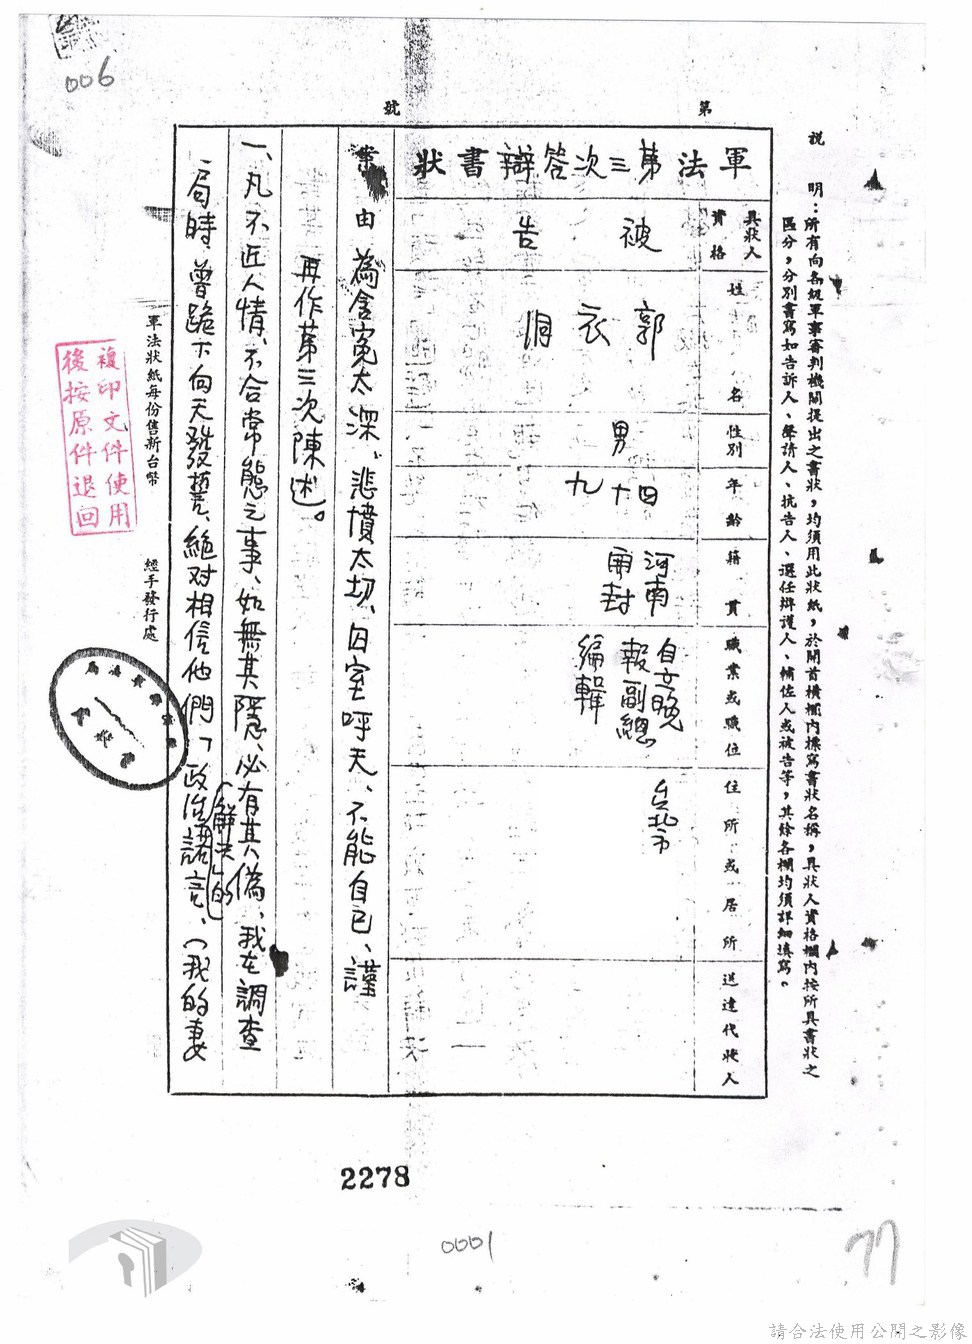 006
第 號
說 明：所有向各級軍事審判機關提出之書狀，均須用此狀紙，於開首橫欄內標寫書狀名稱，具狀人資格欄內按所具書狀之
區分，分別書寫如告訴人、聲請人、抗告人、選任辯護人、輔佐人或被告等，其餘各欄均須詳細填寫。
軍法第三次答辯書狀
具狀人資格
被 告
姓 名
郭衣洞
性別
男
年齡
四十九
籍貫
河南
開封
職業或職位
自立晚
報副總
編輯
住所或居所
台北市
送達代狀人
案由 為含冤太深、悲憤太切、囚室呼天、不能自已、謹
再作第三次陳述。
一、凡不近人情、不合常態之事、如無其隱、必有其偽、我在調查
局時曾跪下向天發誓、絕对相信他們「政治解決」的諾言、（我的妻
軍法狀紙每份售新台幣 經手發行處
複印文件使用
後按原件退回
2278
0001
77
請合法使用公開之影像